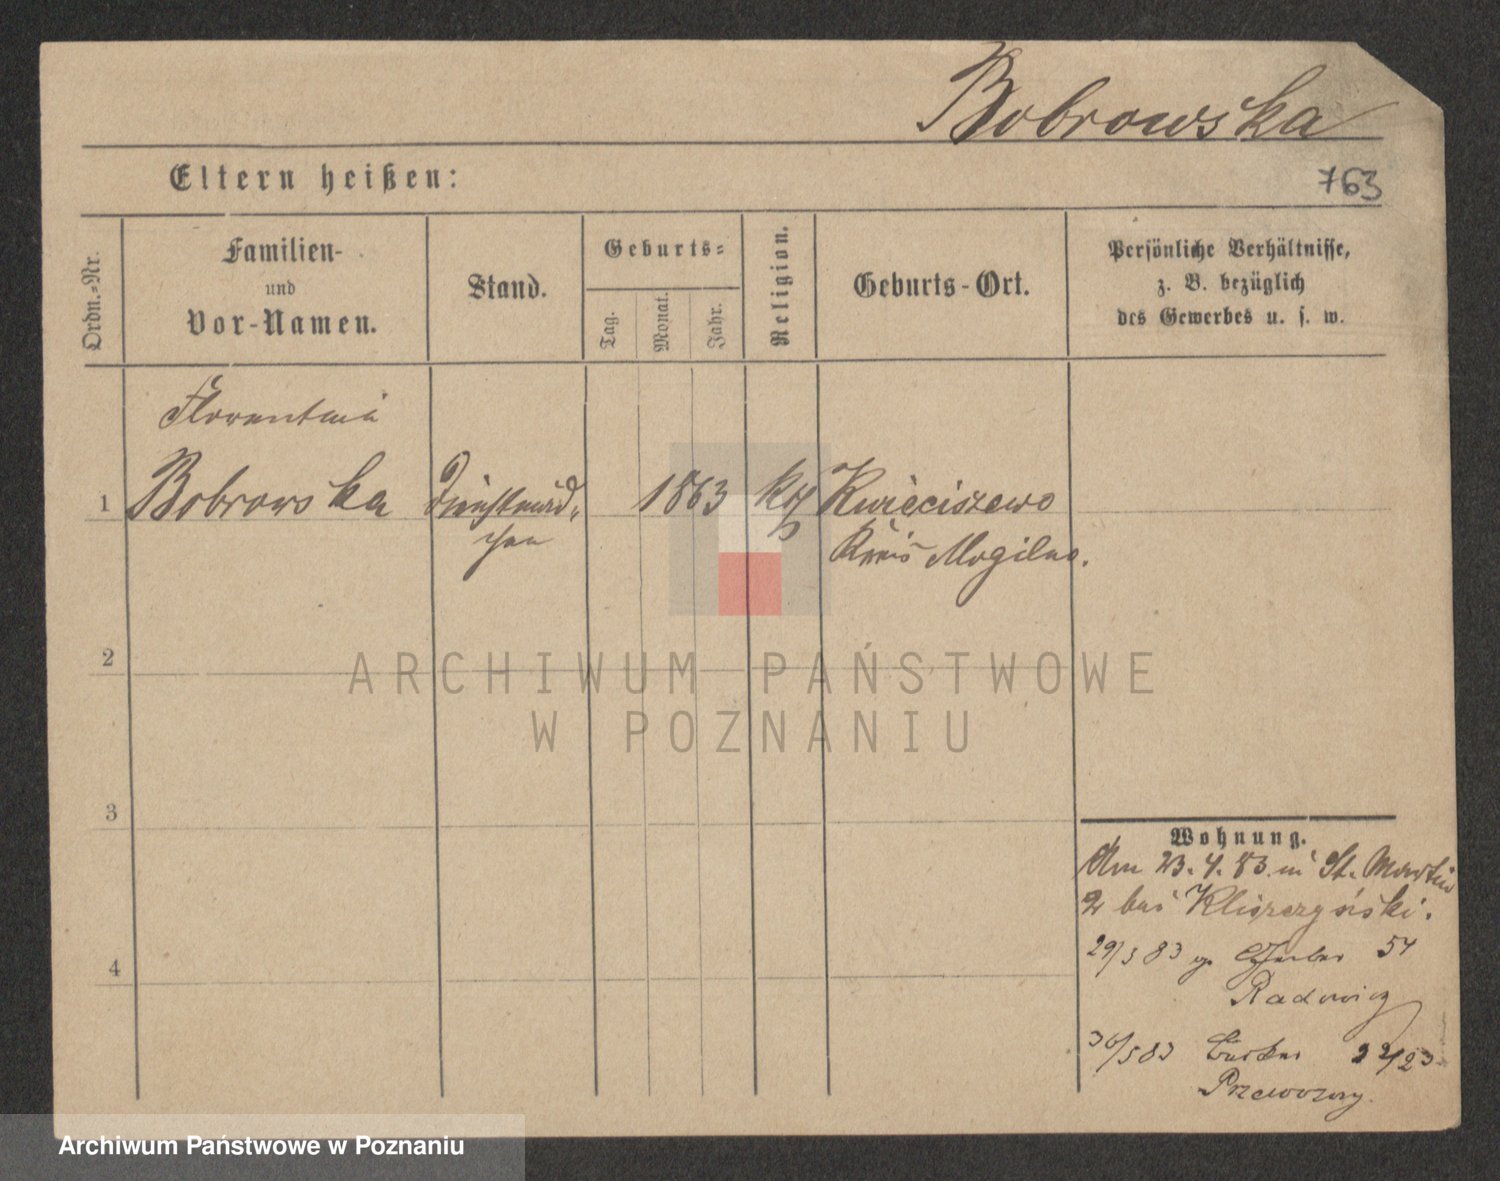 Bobrowska
Eltern heißen:
763
Ordn.-Nr.
Familien-
und
Vor-Namen.
Stand.
Geburts-
Tag.
Monat.
Jahr.
Religion.
Geburts-Ort.
Persönliche Verhältnisse,
z. B. bezüglich
des Gewerbes u. s. w.
Florentina
1 Bobrowska Dienstmäd- 1863 Kwieciszewo
chen Kreis Mogilno.
2
3
4
ARCHIWUM PAŃSTWOWE
W POZNANIU
Wohnung.
Am 23.4.83. in St. Martin
2 bei
29/5 83 54
30/5 83 22/23
Archiwum Państwowe w Poznaniu